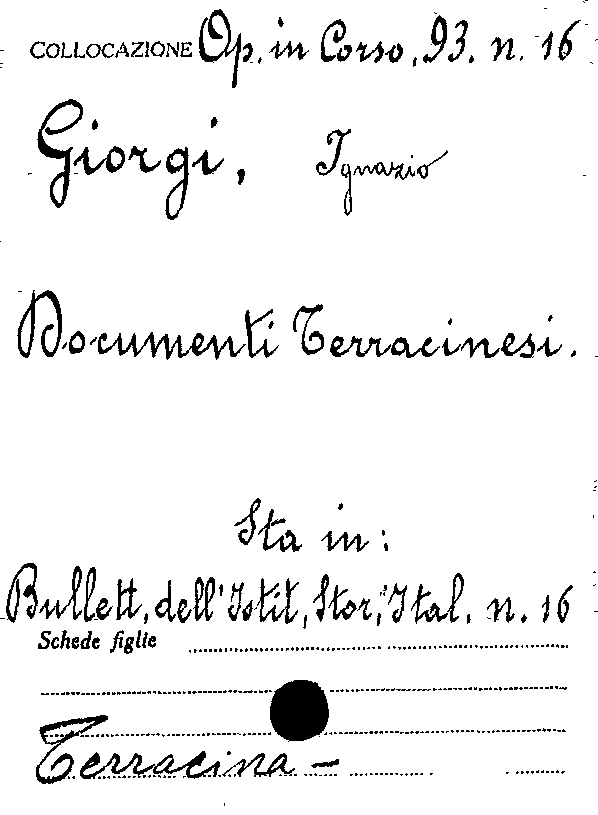 COLLOCAZIONE Op. in Corso, 93. n. 16
Giorgi, Ignazio
Documenti Terracinesi.
Sta in:
Bullett. dell'Istit, Stor, Ital. n. 16
Schede figlie
Terracina -